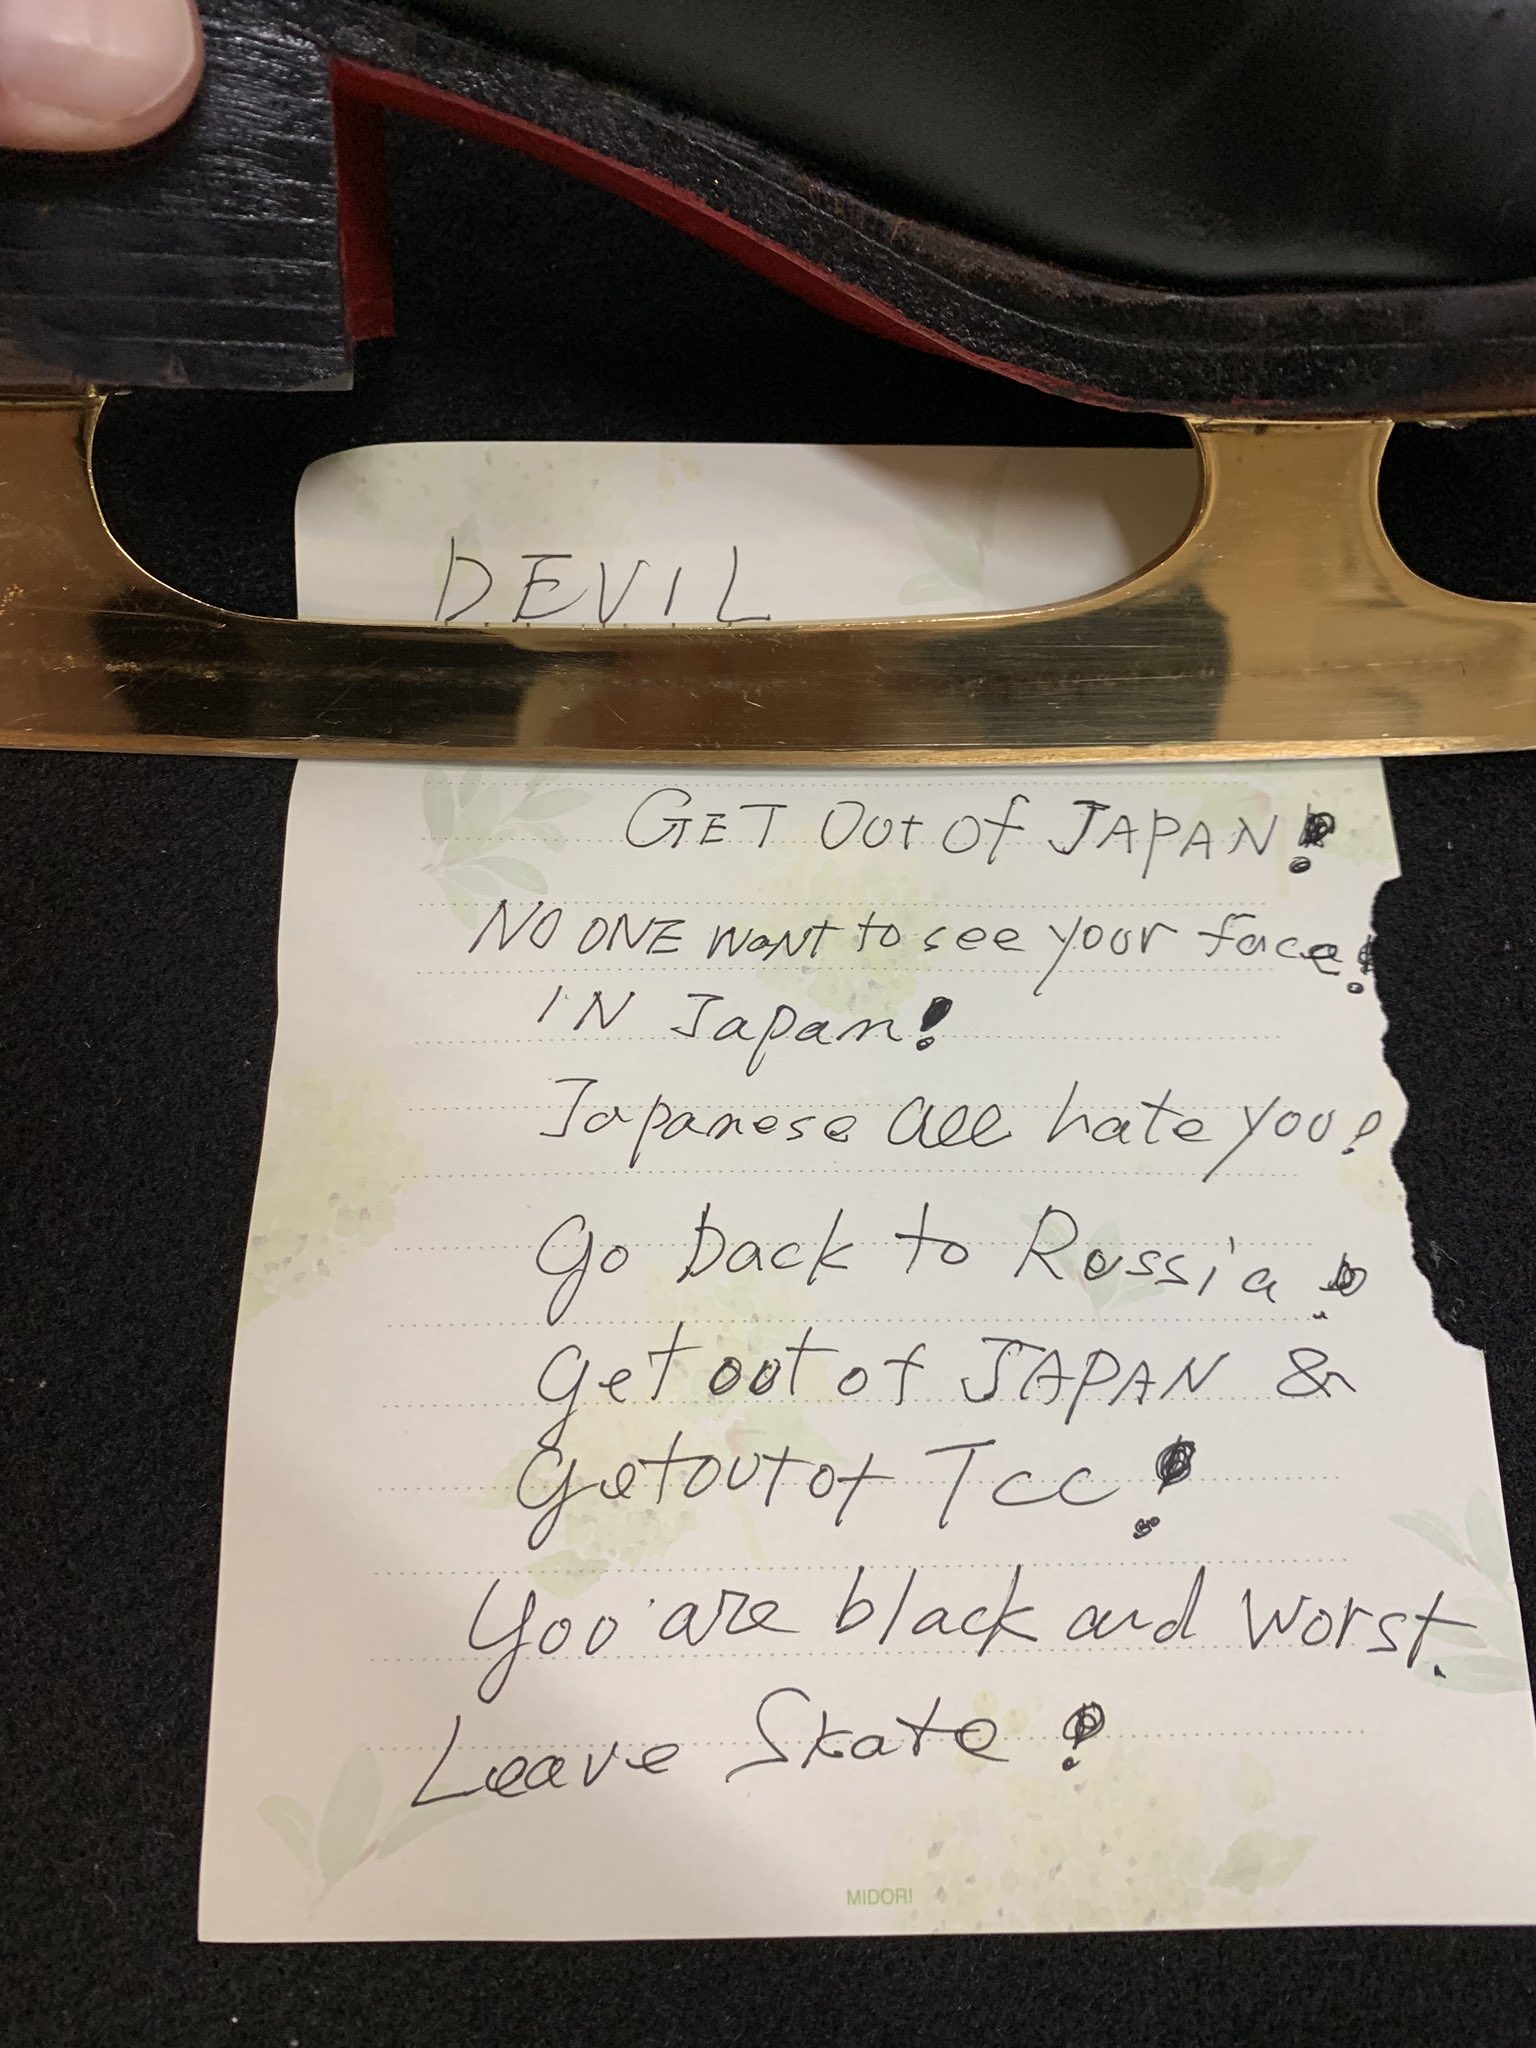 DEVIL
GET Out of JAPAN!
NO ONE WANT to see your face!
IN Japan!
Japanese all hate you!
Go back to Russia!
Get out of JAPAN &
Get out of TCC!
You are black and worst.
Leave Skate!
MIDORI